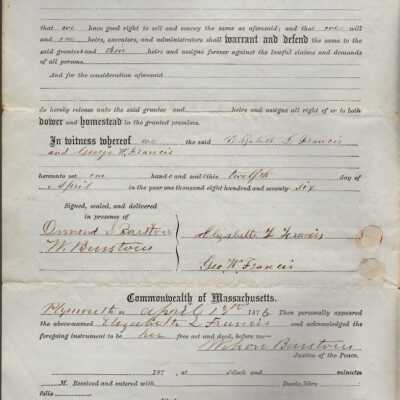 that we have good right to sell and convey the same as aforesaid; and that we will
and our heirs, executors, and administrators shall warrant and defend the same to the
said grantee and their heirs and assigns forever against the lawful claims and demands
of all persons.
And for the consideration aforesaid
do hereby release unto the said grantee and heirs and assigns all right of or to both
dower and homestead in the granted premises.
In witness whereof we the said Elizabeth L Francis
and George W. Francis
hereunto set our hand and seal this twelfth day of
April in the year one thousand eight hundred and seventy six
Signed, sealed, and delivered
in presence of
Ormond
W. Barstow
Elizabeth L Francis
Geo W. Francis
Commonwealth of Massachusetts.
Plymouth April 187 Then personally appeared
the above-named Elizabeth L Francis and acknowledged the
foregoing instrument to be her free act and deed, before me—
Barstow
Justice of the Peace.
187 , at o'clock and minutes
M. Received and entered with Deeds, libro
folio